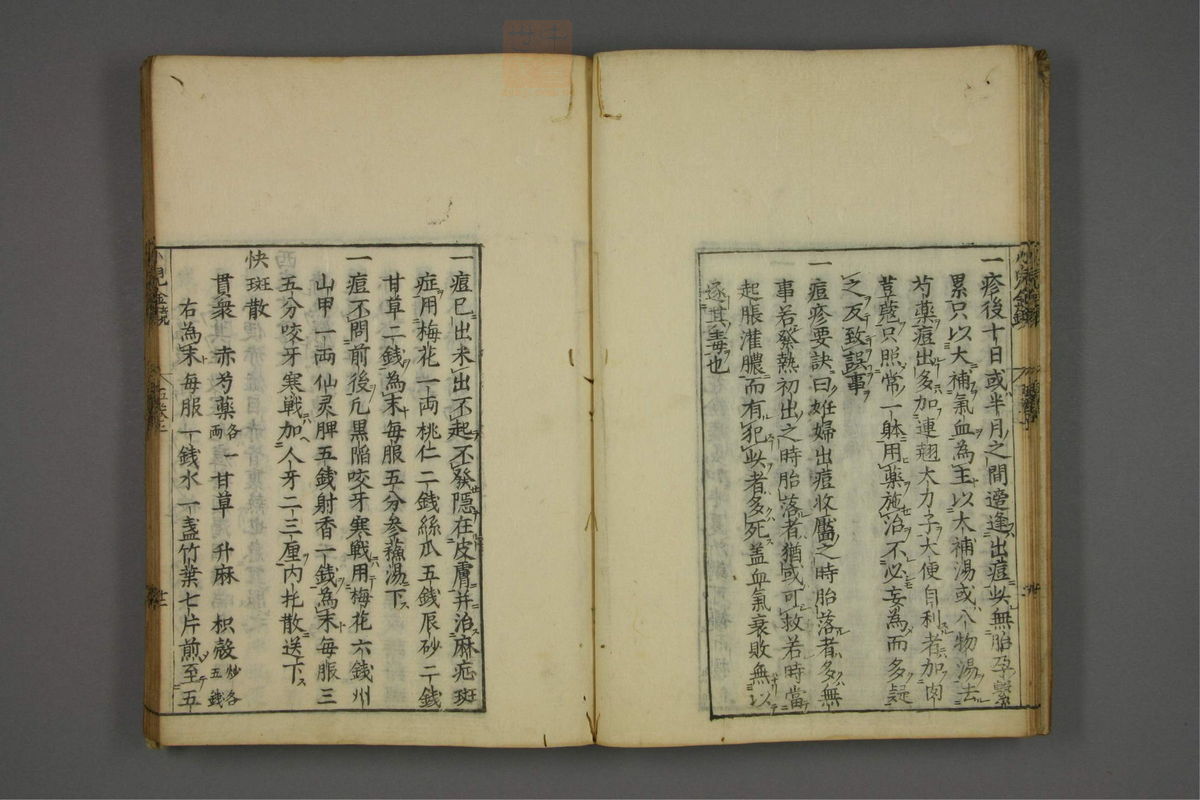 一疹後十日或半月之間遶逢出痘此無胎孕繫
累只以大補氣血為主以大補湯或八物湯去
芍藥痘出多加連翹大力子大便自利者加肉
荳蔲只照常一躰用藥施治不必妄為而多疑
之反致誤事
一痘疹要訣曰妊婦出痘收靨之時胎落者多無
事若發熱初出之時胎落者猶或可救若時當
起脹灌膿而有犯此者多死盖血氣衰敗無以
逐其毒也
一痘已出未出不起不發隱在皮膚并治麻疕斑
症用梅花一両桃仁二錢絲瓜五錢辰砂二錢
甘草二錢為末每服五分參蘓湯下
一痘不問前後凢黒陥咬牙寒戰用梅花六錢州
山甲一両仙灵脾五錢射香一錢為末每服三
五分咬牙寒戦加人牙二三厘内托散送下
快斑散
貫衆 赤芍藥各一両 甘草 升麻 枳殻炒各五錢
右為末每服一錢水一盞竹葉七片煎至五
小兒金鏡